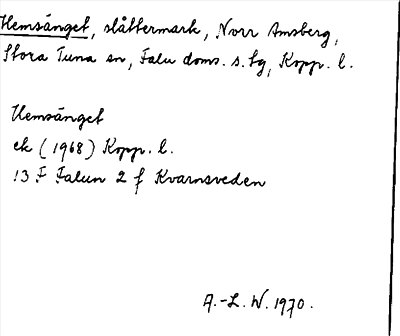 Hemsänget, slåttermark, Norr Amsberg,
Stora Tuna sn, Falu doms. s. tg, Kopp. l.
Hemsänget
ek (1968) Kopp. l.
13 F Falun 2 f Kvarnsveden
A.-L. W. 1970.